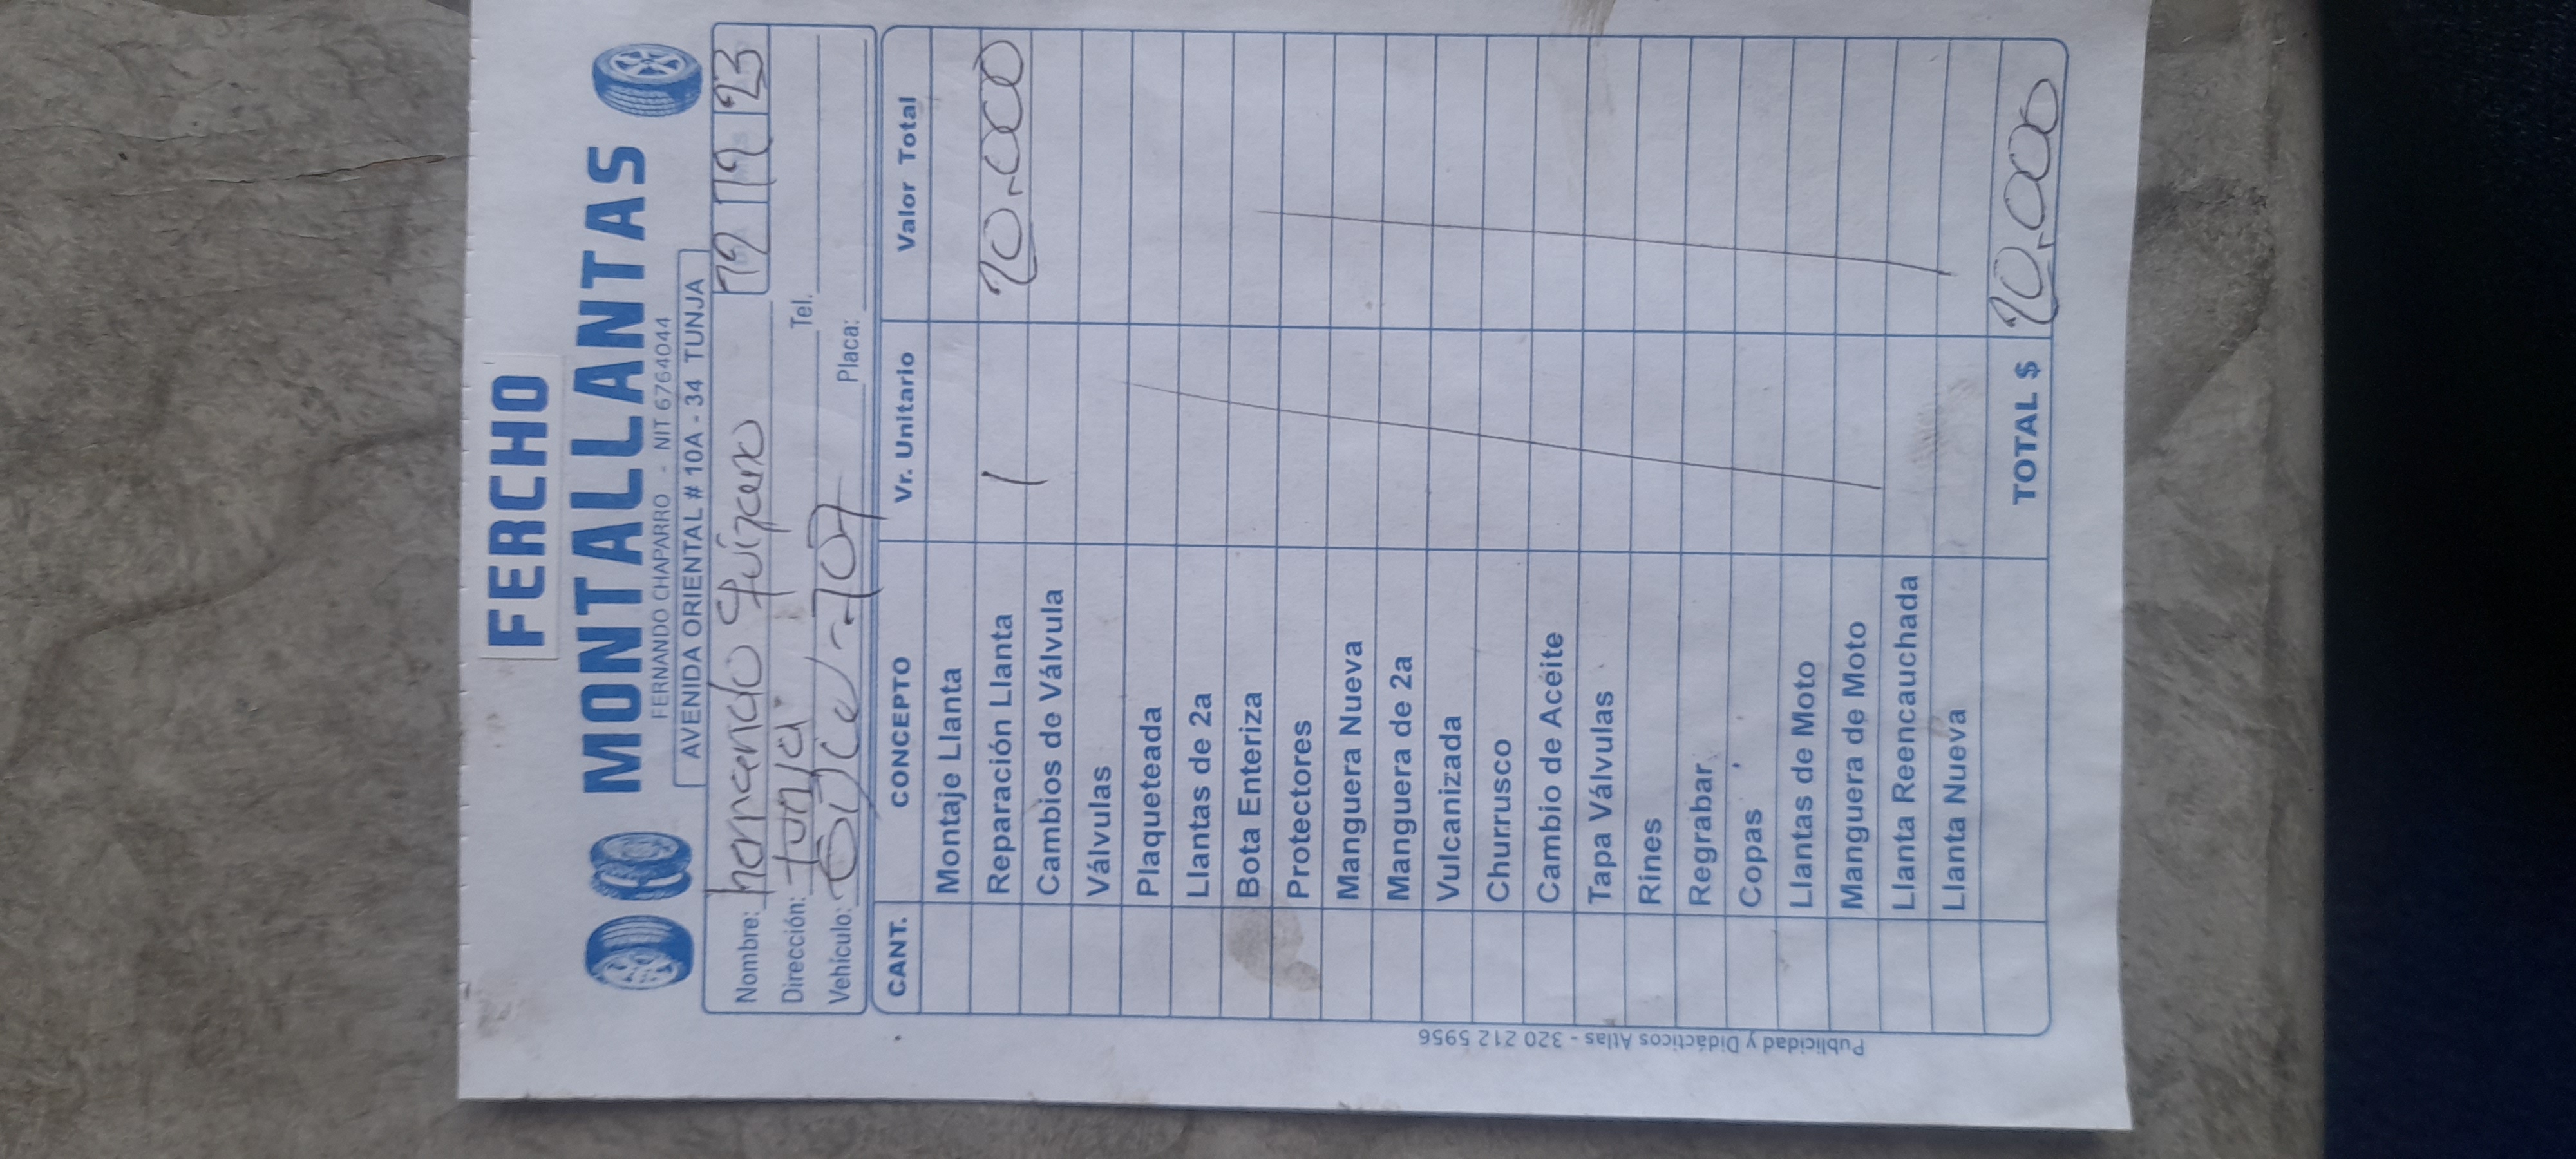 FERCHO
MONTALLANTAS
FERNANDO CHAPARRO - NIT 6764044
AVENIDA ORIENTAL # 10A - 34 TUNJA
Nombre: hernando 23
Dirección: tunja Tel.
Vehículo: Placa:
CANT. CONCEPTO Vr. Unitario Valor Total
Montaje Llanta
Reparación Llanta 1
Cambios de Válvula
Válvulas
Plaqueteada
Llantas de 2a
Bota Enteriza
Protectores
Manguera Nueva
Manguera de 2a
Vulcanizada
Churrusco
Cambio de Aceite
Tapa Válvulas
Rines
Regrabar
Copas
Llantas de Moto
Manguera de Moto
Llanta Reencauchada
Llanta Nueva
TOTAL $
Publicidad y Didácticos Atlas - 320 212 5956